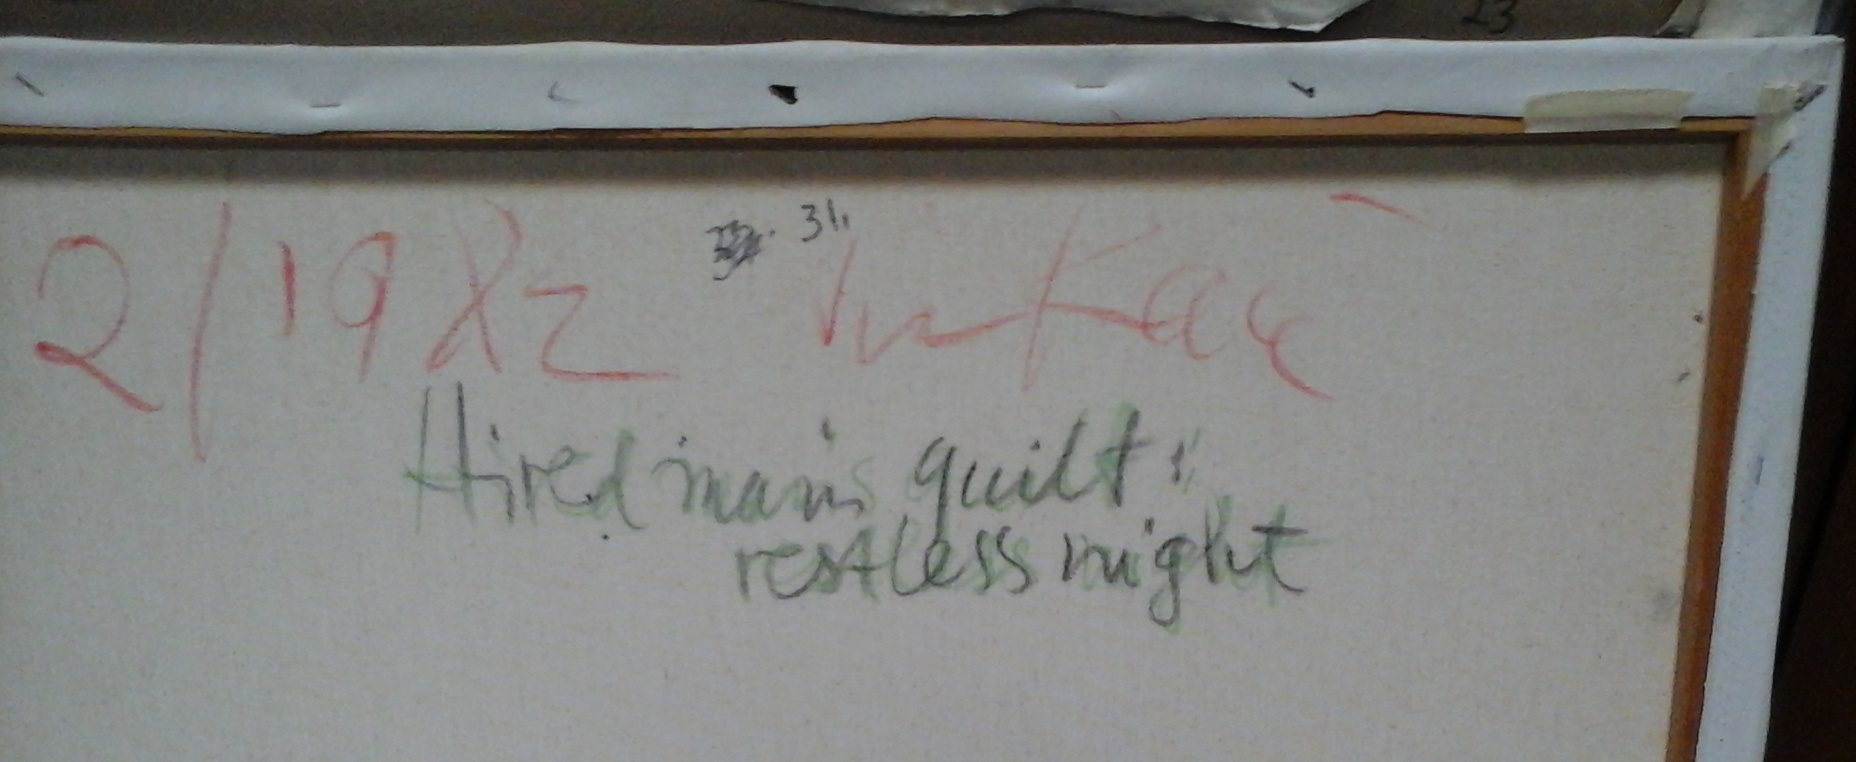 23
2/1982 311
Hired man's quilt:
restless night